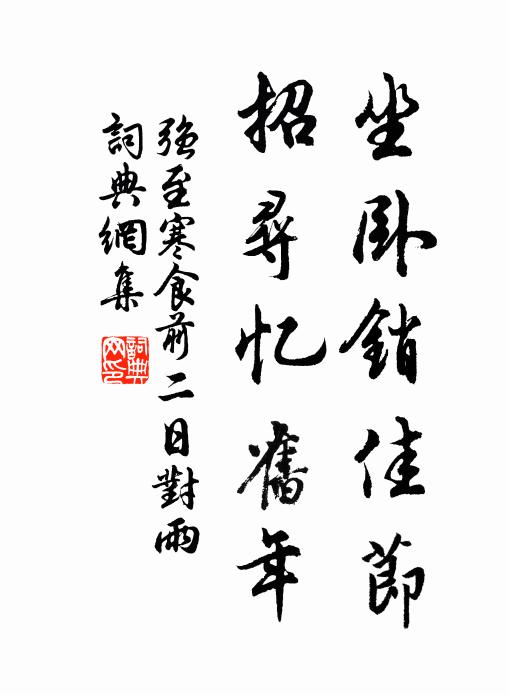 坐卧銷佳節
招尋忆舊年
強至寒食前二日對雨
詞典網集
詞典网印